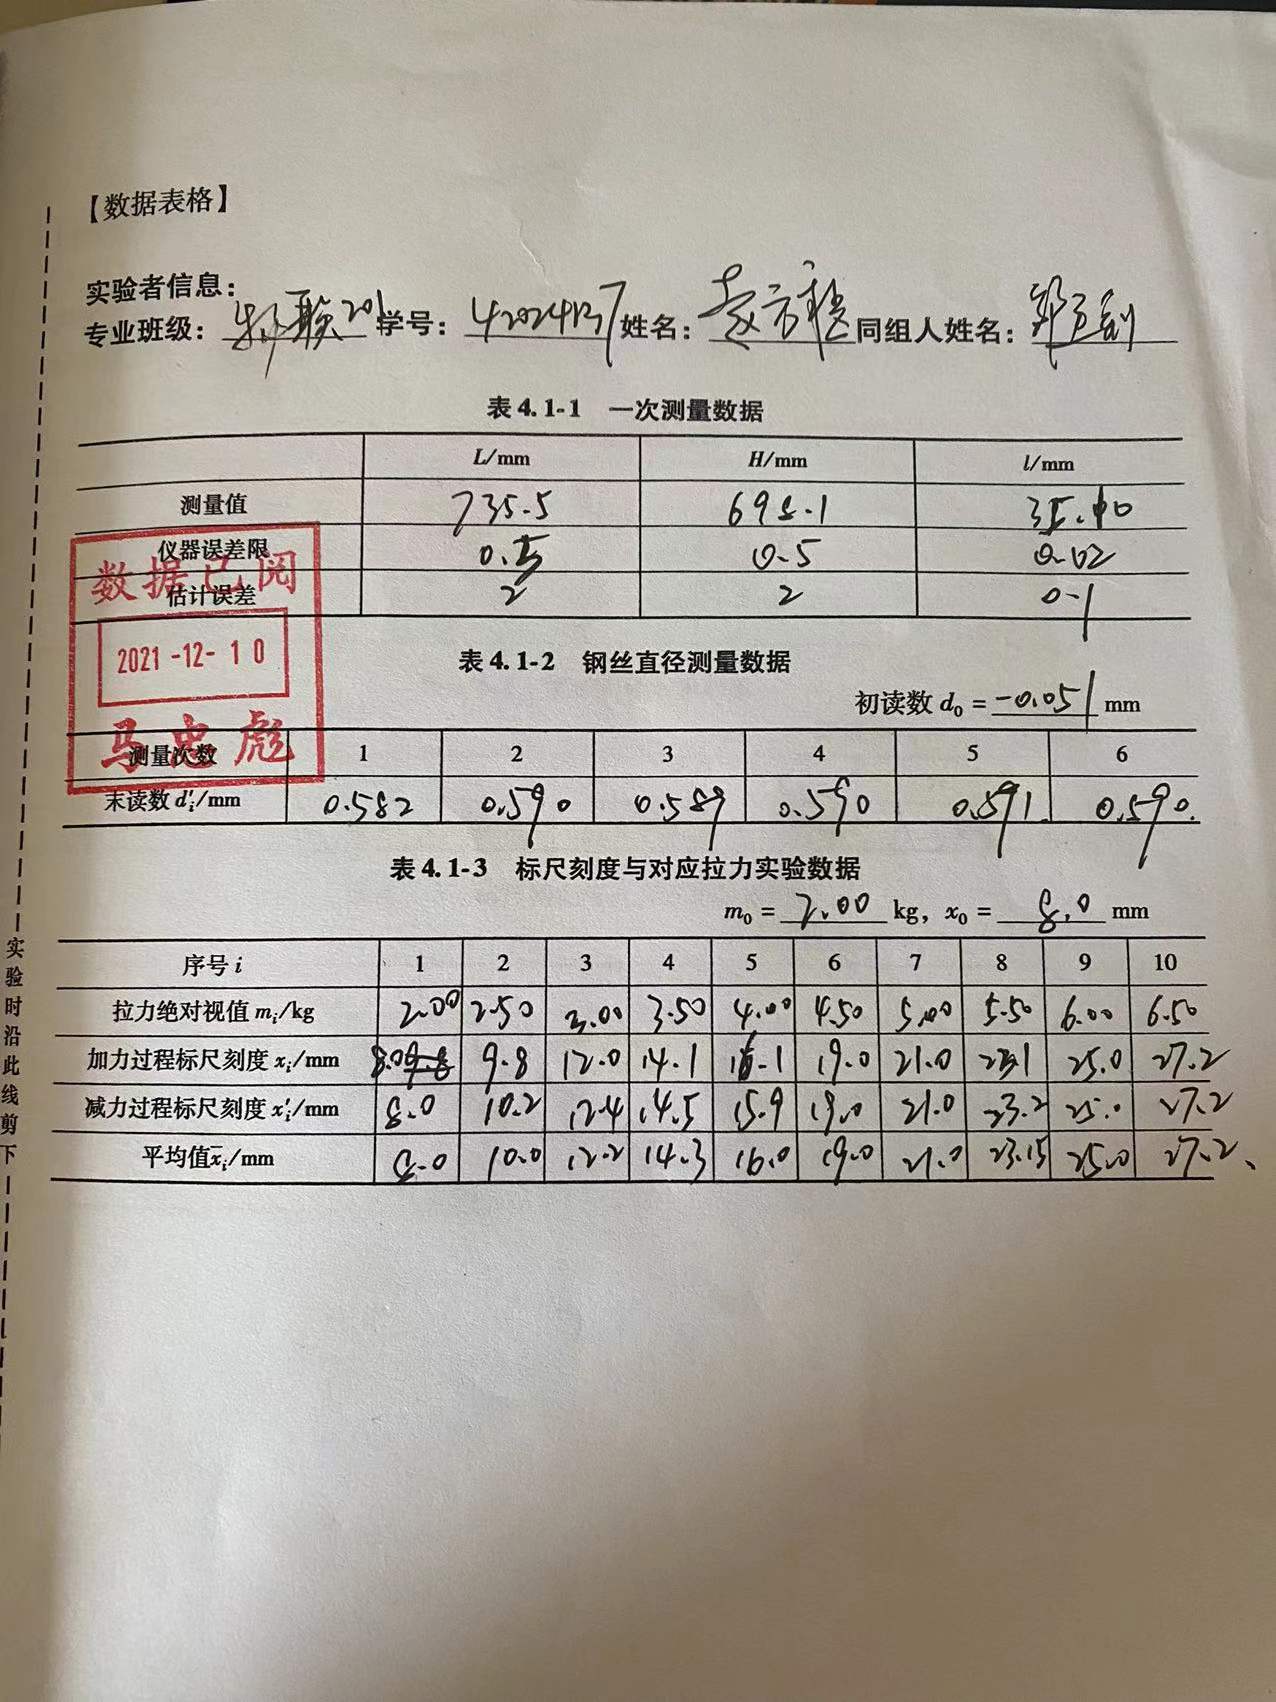 【数据表格】
实验者信息：
专业班级： 201 学号： 姓名： 同组人姓名：
表 4.1-1 一次测量数据
L/mm H/mm l/mm
测量值 735.5 698.1 35.10
仪器误差限 0.5 0.5 0.02
估计误差 2 2 0.1
数据已阅
2021-12-10
马忠彪
表 4.1-2 钢丝直径测量数据
初读数 d₀ = -0.051 mm
测量次数 1 2 3 4 5 6
末读数 d′ᵢ/mm 0.582 0.590 0.589 0.590 0.591 0.590.
表 4.1-3 标尺刻度与对应拉力实验数据
m₀ = 2.00 kg，x₀ = 8.0 mm
序号 i 1 2 3 4 5 6 7 8 9 10
拉力绝对视值 mᵢ/kg 2.00 2.50 3.00 3.50 4.00 4.50 5.00 5.50 6.00 6.50
加力过程标尺刻度 xᵢ/mm 8.0 9.8 12.0 14.1 16.1 19.0 21.0 23.1 25.0 27.2
减力过程标尺刻度 x′ᵢ/mm 8.0 10.2 12.4 14.5 15.9 19.0 21.0 23.2 25.0 27.2
平均值x̄ᵢ/mm 8.0 10.0 12.2 14.3 16.0 19.0 21.0 23.15 25.0 27.2、
实验时沿此线剪下